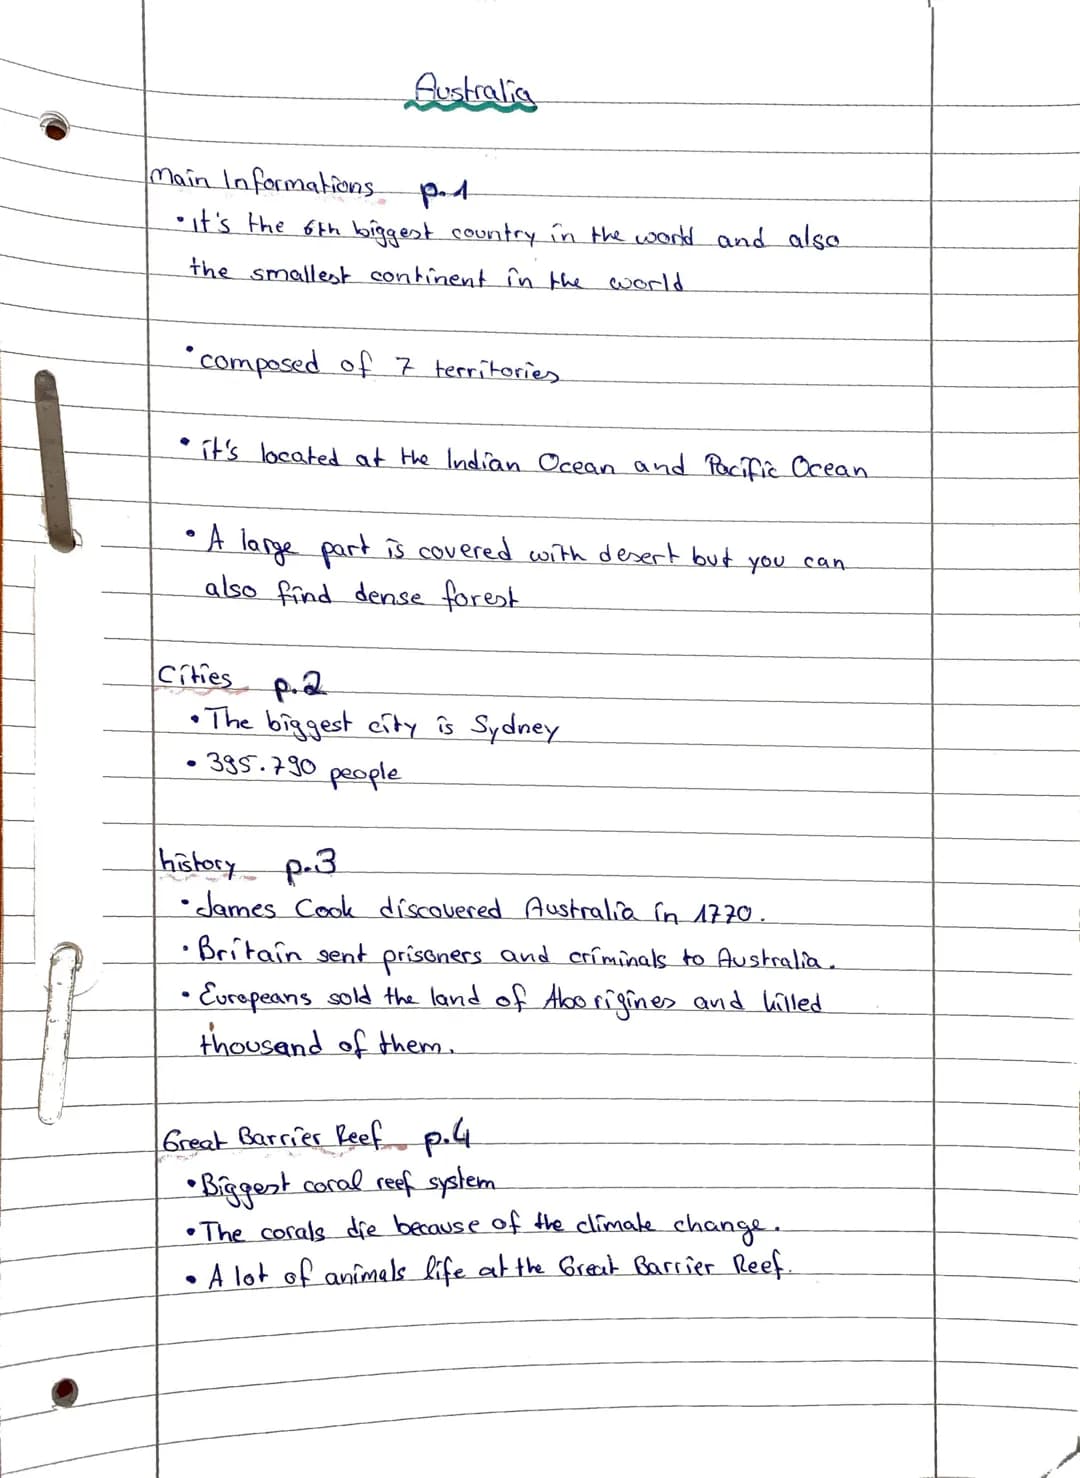 Australia
Main Informations p.1
• it's the 6th biggest country in the world and also
the smallest continent in the world
• composed of 7 territories
• it's located at the Indian Ocean and Pacific Ocean
• A large part is covered with desert but you can
also find dense forest
Cities p.2
• The biggest city is Sydney
• 395.790 people
history p.3
• James Cook discovered Australia in 1770.
• Britain sent prisoners and criminals to Australia.
• Europeans sold the land of Aborigines and killed
thousand of them.
Great Barrier Reef p.4
• Biggest coral reef system
• The corals die because of the climate change.
• A lot of animals life at the Great Barrier Reef.